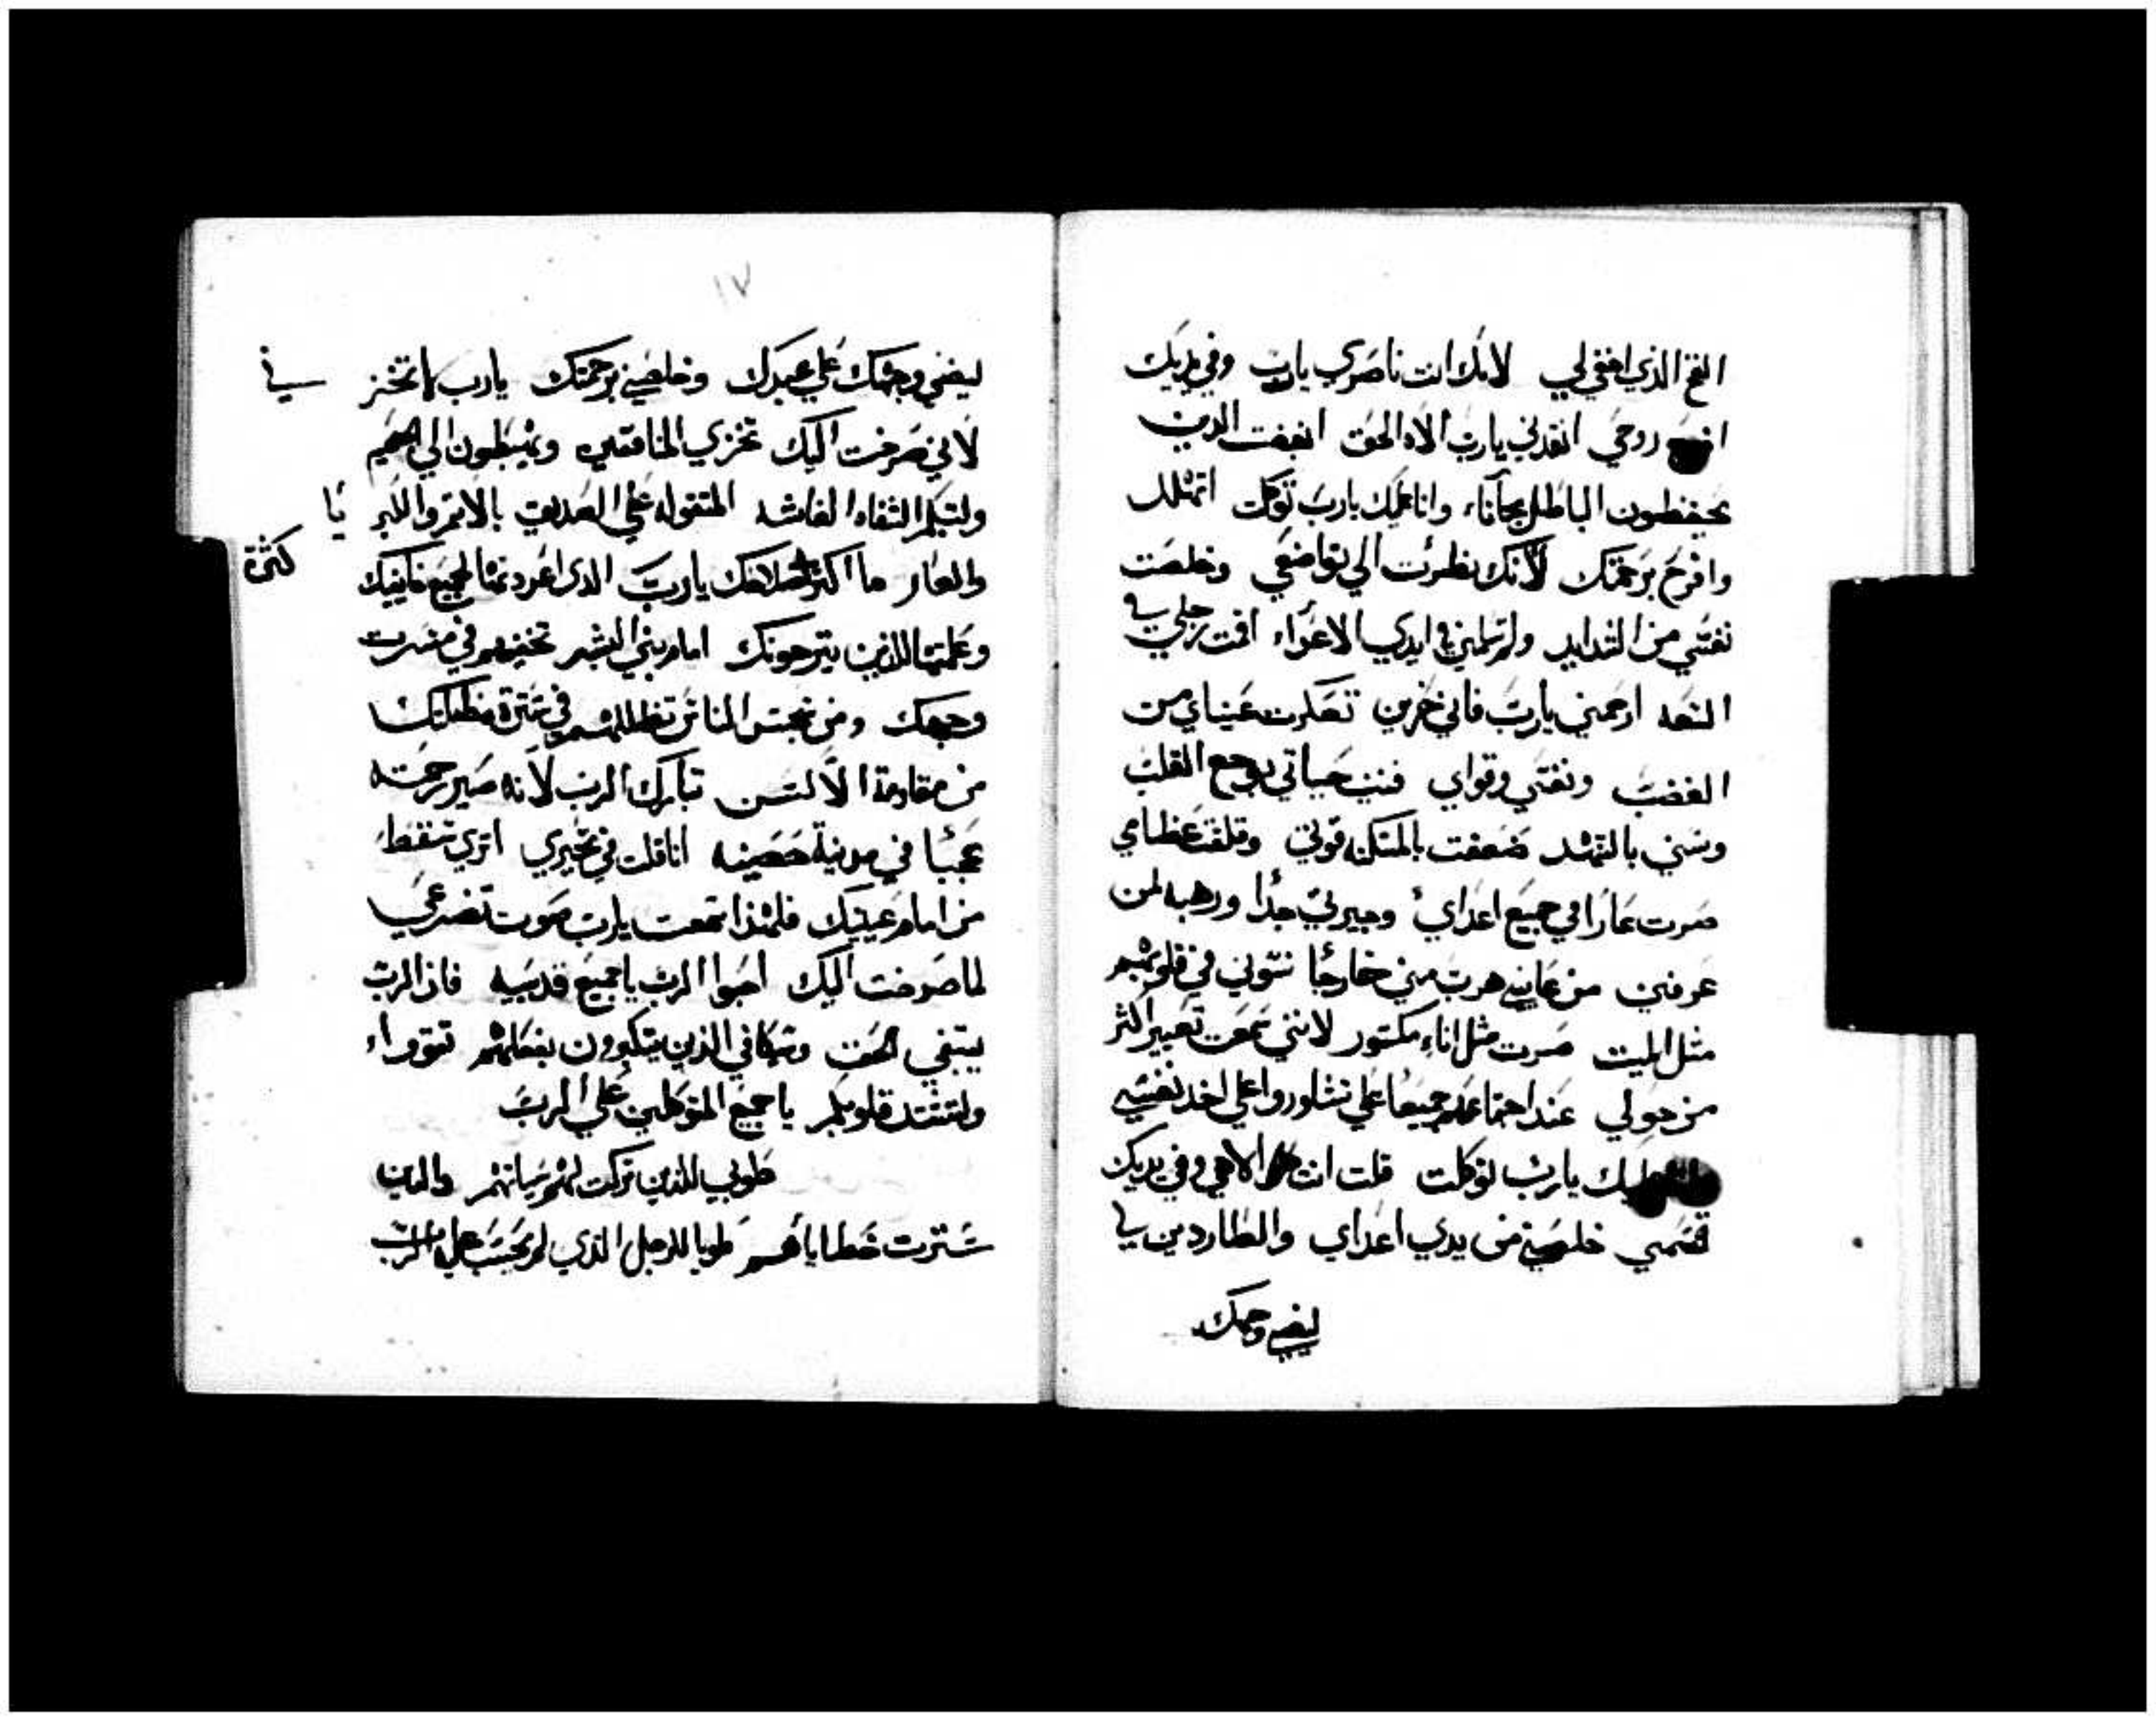 الفخ الذي اخفي لي لانك انت ناصري يارب وفي يديك
روحي انقدني يارب الاه الحق ابغضت الدين
يحفظون الباطل مجاناً وانا عليك يارب توكلت اتهلل
وافرح برحمتك لانك نظرت الي تواضعي وخلصت
نفسي من الشدايد ولم تسلمني في ايدي الاعداء اقمت رجلي في
السعه ارحمني يارب فاني حزين تعكرت عيناي من
الغضب ونفسي وقواي فنيت حياتي بوجع القلب
وسني بالتنهد ضعفت بالمسكنه قوتي وقلقت عظامي
صرت عارا في جميع اعداي وجيرتي جدا ورهبه لمن
عرفني من عاينني هرب مني خارجا نسوني في قلوبهم
مثل الميت صرت مثل اناء مكسور لانني سمعت تعيير اكثر
من حولي عند اجتماعهم جميعا علي تشاوروا علي اخد نفسي
عليك يارب توكلت قلت انت الاهي وفي يديك
قسمي خلصني من يدي اعداي والطاردين لي
ليضي وجهك
١٧
ليضي وجهك علي عبدك وخلصني برحمتك يارب لا تخز
ني
لاني صرخت اليك تخزي المنافقين ويهبطون الي الجحيم
ولتبكم الشفاه الغاشه المتقوله علي الصديق بالاتم والكبر
يا
والعار ما اكثر صلاحك يارب الذي اخيفك
كثرة
وعملتها للذين يترجونك امام بني البشر تخفيهم في ستر
وجهك ومن سجس الناس تظللهم في سترة مظلتك
من مقاومة الالسن تبارك الرب لانه صير رحمته
عجبا في مدينة حصينه انا قلت في تحيري اتري سقط
من امام عينيك فلهذا سمعت يارب صوت تضرعي
لما صرخت اليك احبوا الرب يا جميع قديسيه فان الرب
يبتغي الحق ويكافي الذين يتكبرون بفعلهم تقووا
ولتشتد قلوبكم يا جميع المتوكلين علي الرب
طوبي للذين تركت لهم سياتهم والدين
سترت خطاياهم طوبا للرجل الذي لم يحسب عليه الرب